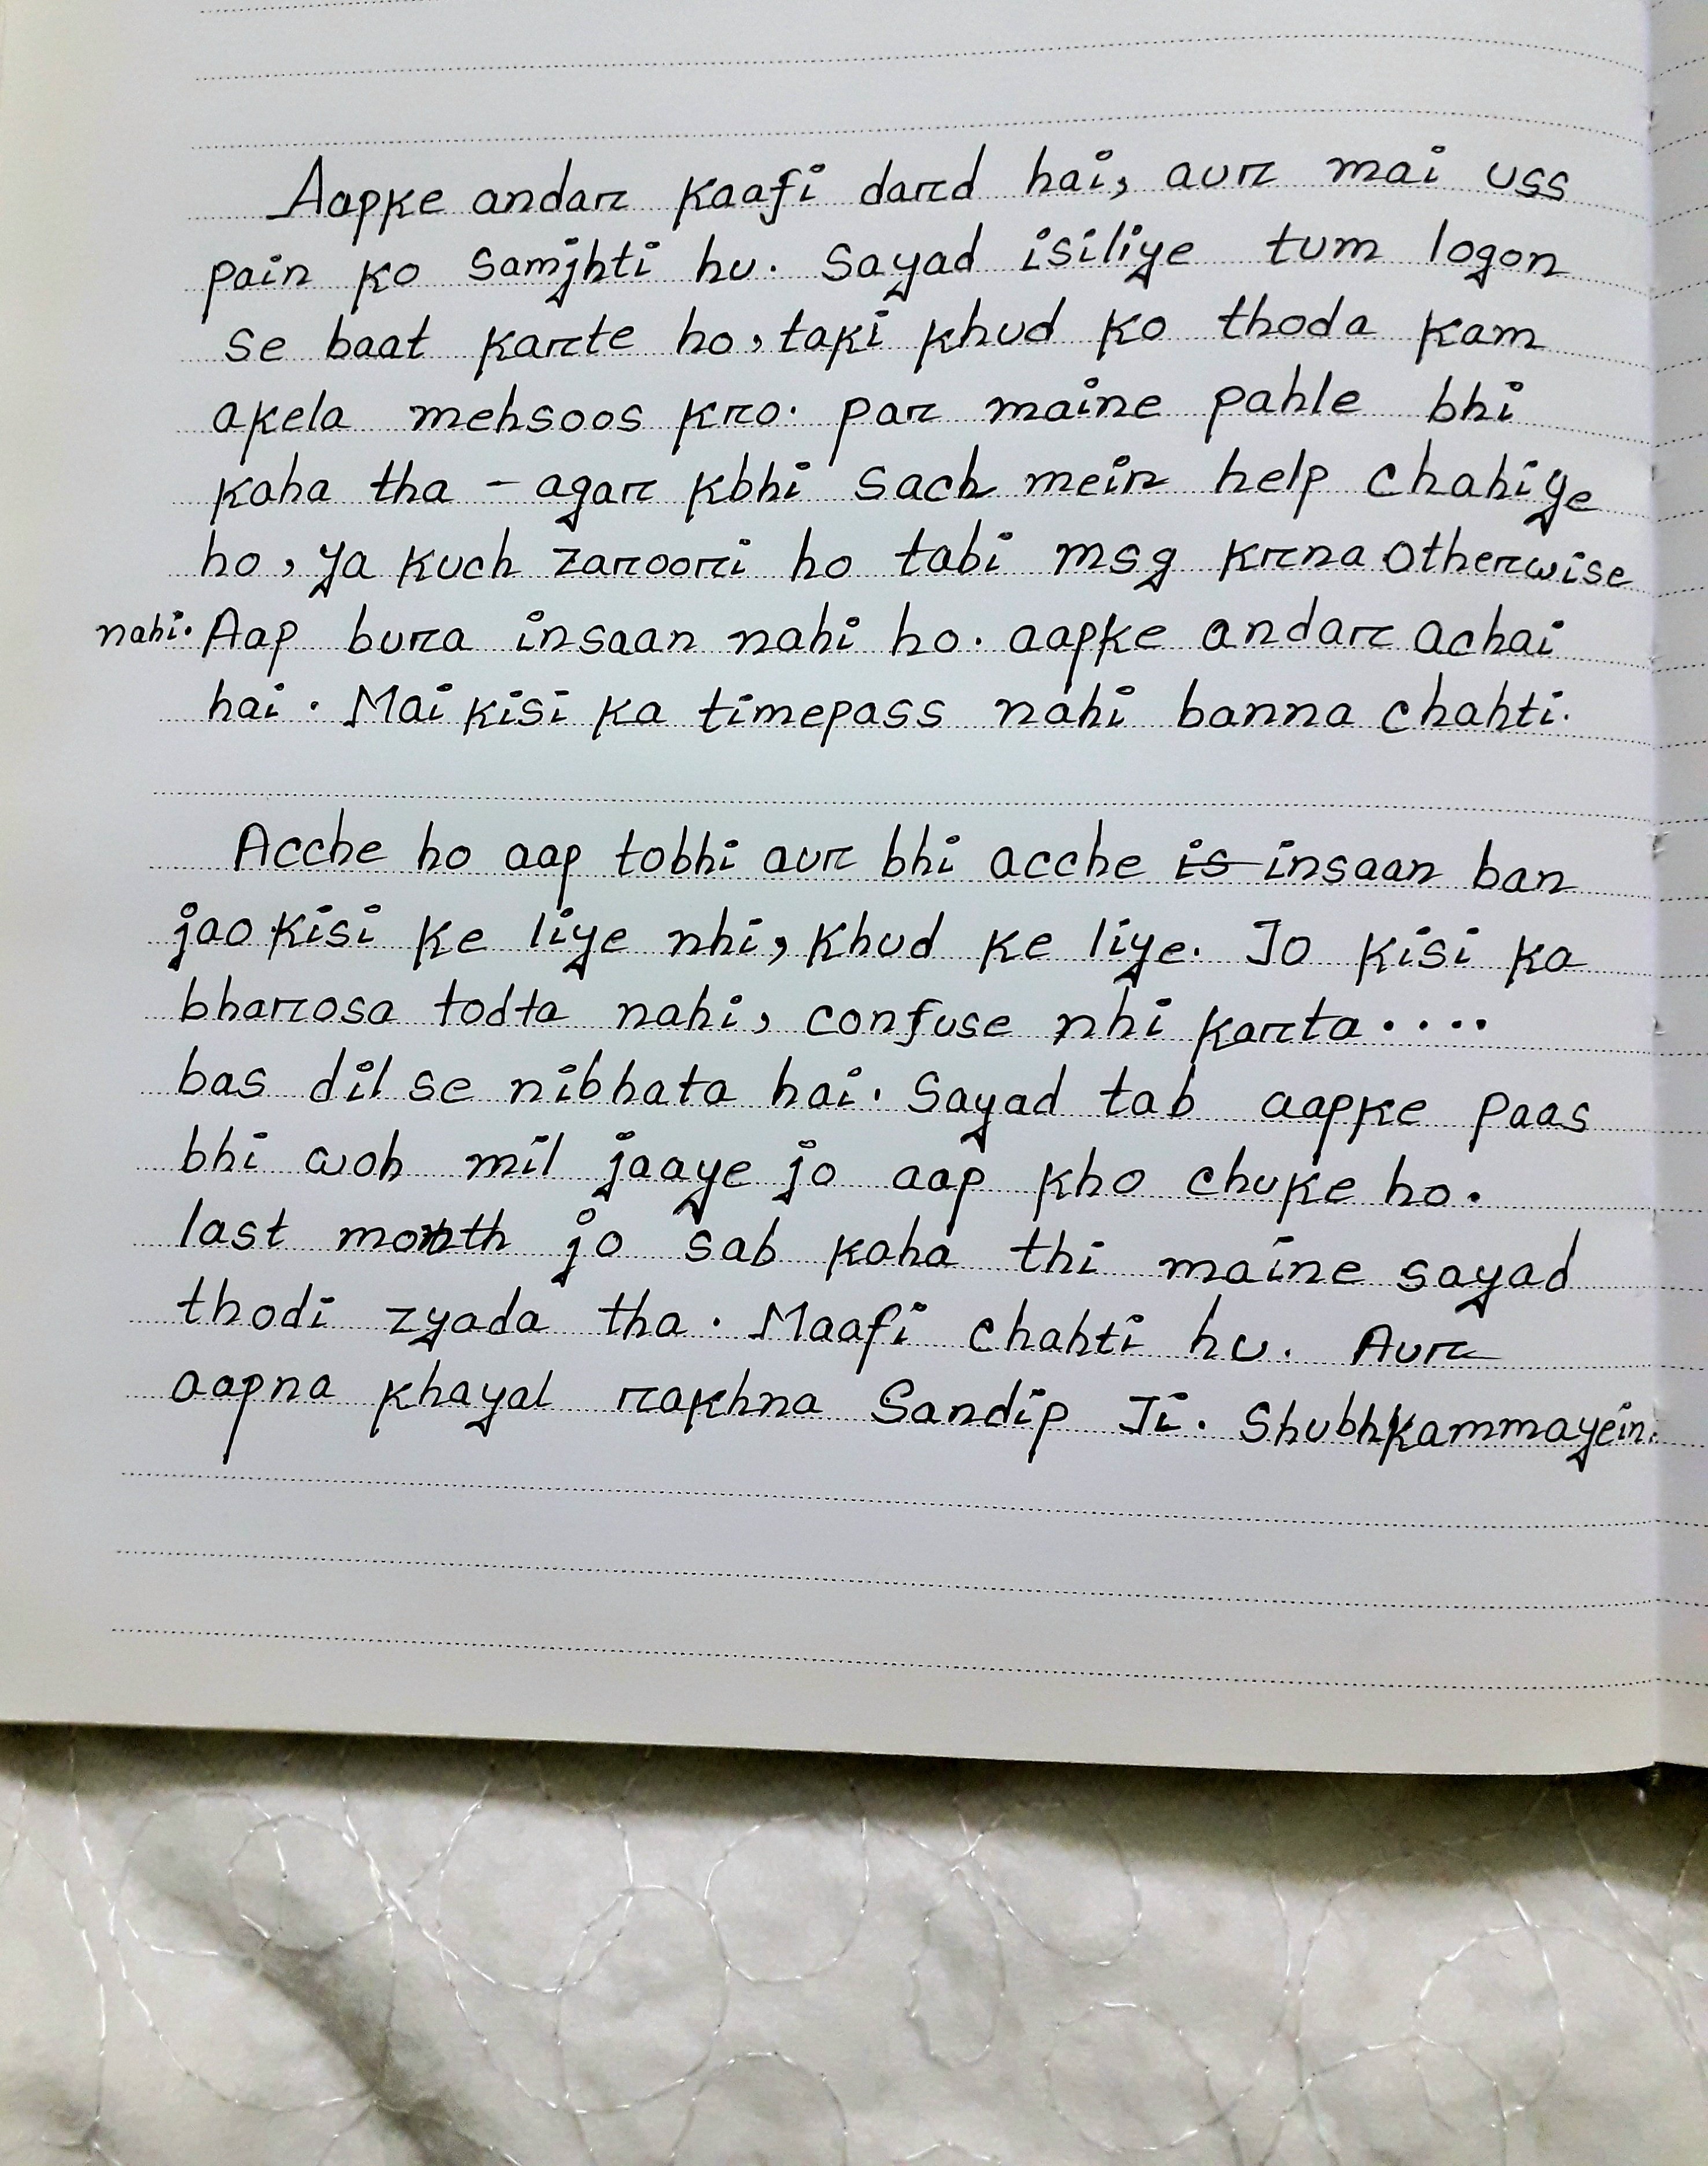 Aapke andar kaafi dard hai, aur mai uss
pain ko samjhti hu. Sayad isiliye tum logon
se baat karte ho, taki khud ko thoda kam
akela mehsoos kro. par maine pahle bhi
kaha tha - agar kbhi sach mein help chahiye
ho, ya kuch zaroori ho tabi msg krna otherwise
nahi. Aap bura insaan nahi ho. aapke andar achai
hai. Mai kisi ka timepass nahi banna chahti.
Acche ho aap tobhi aur bhi acche is insaan ban
jao kisi ke liye nhi, khud ke liye. Jo kisi ka
bharosa todta nahi, confuse nhi karta....
bas dil se nibhata hai. Sayad tab aapke paas
bhi woh mil jaaye jo aap kho chuke ho.
last month jo sab kaha thi maine sayad
thodi zyada tha. Maafi chahti hu. Aur
aapna khayal rakhna Sandip Ji. Shubhkammayein.